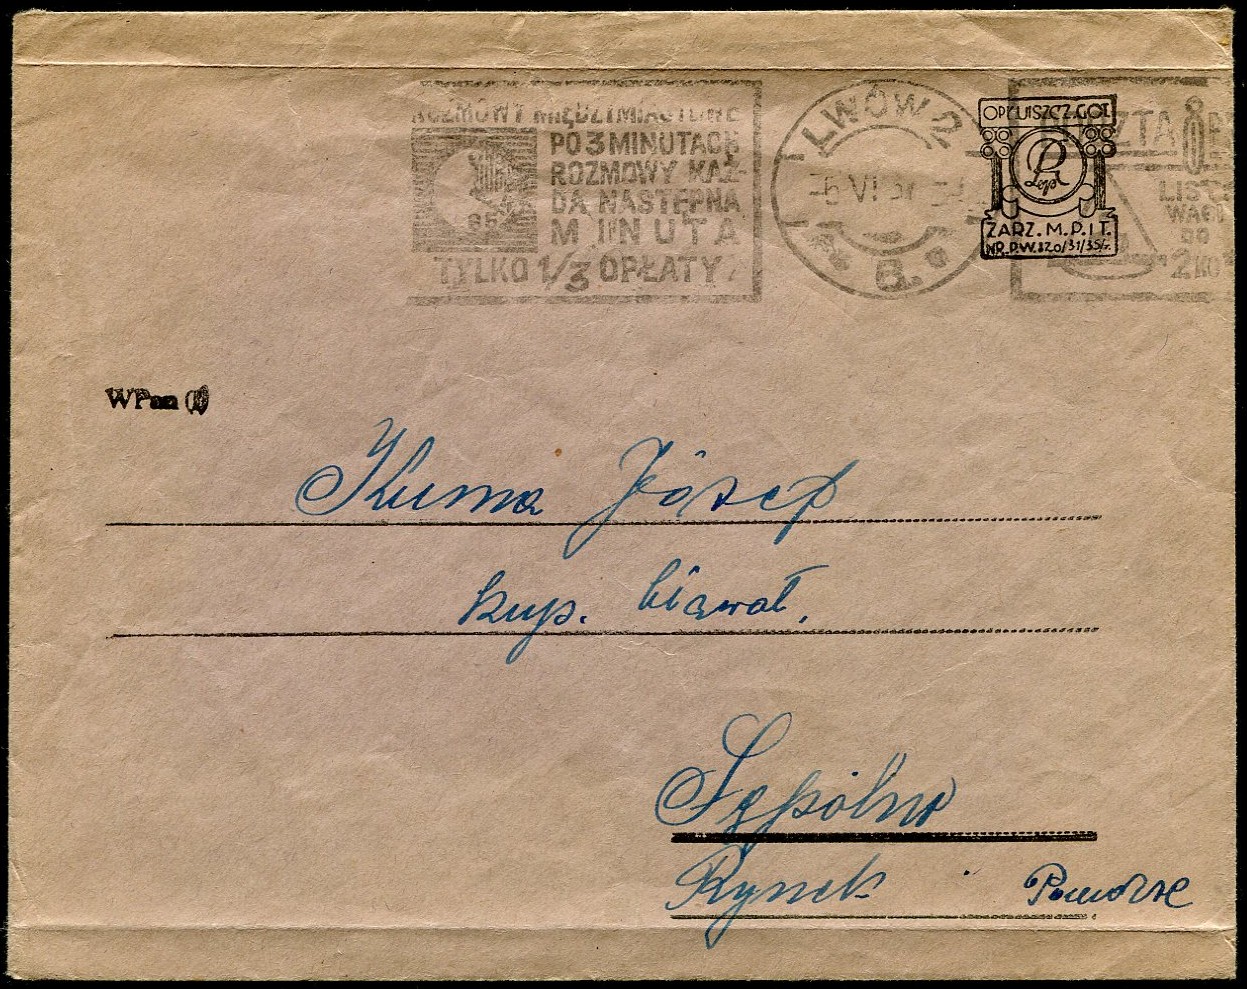 ROZMOWY MIĘDZYMIASTOWE
PO 3 MINUTACH
ROZMOWY KAŻ-
DA NASTĘPNA
MINUTA
TYLKO 1/3 OPŁATY
LWÓW 2
VI
B.
OPŁ.UISZCZ.GOT.
ZARZ. M. P. i T.
NR. P.W. 320/31/35/.
LIST
WAGI
DO
2 KG
WPan (i)
Kuma Józef
kup. bławat.
Sępólno
Rynek Pomorze